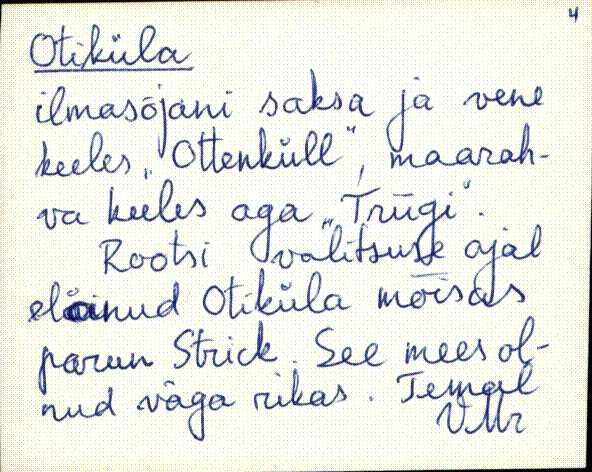 4
Otiküla
ilmasõjani saksa ja vene
keeles „Ottenküll", maarah-
va keeles aga „Triigi".
Rootsi valitsuse ajal
eläinud Otiküla mõisas
parun Strick. See mees ol-
nud väga rikas. Temal
VMr